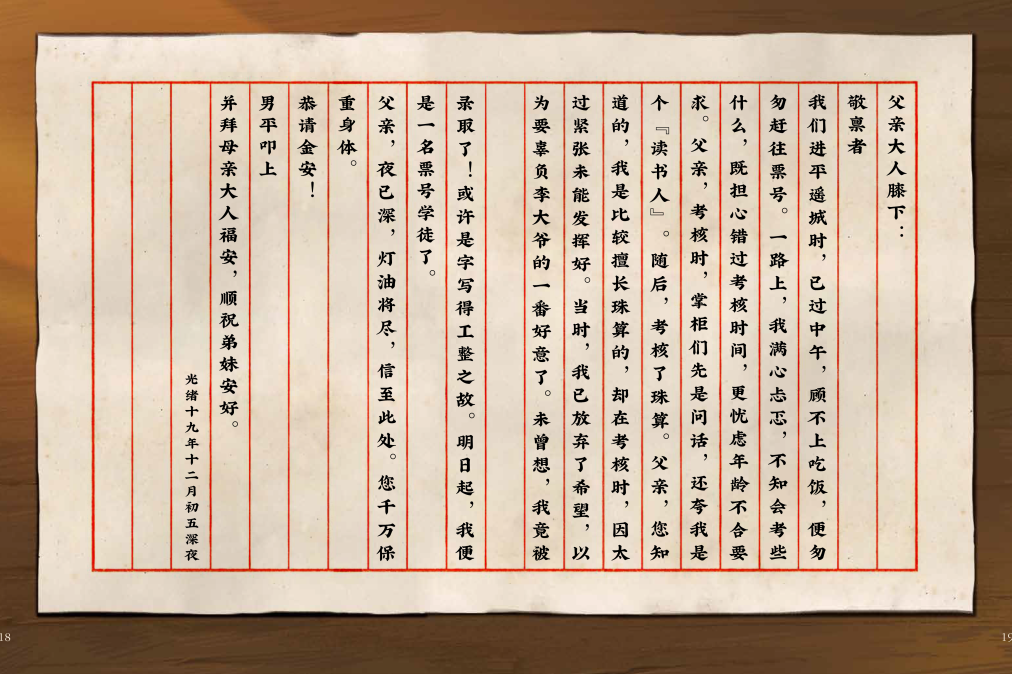 父亲大人膝下：
敬禀者
我们进平遥城时，已过中午，顾不上吃饭，便匆
匆赶往票号。一路上，我满心忐忑，不知会考些
什么，既担心错过考核时间，更忧虑年龄不合要
求。父亲，考核时，掌柜们先是问话，还夸我是
个『读书人』。随后，考核了珠算。父亲，您知
道的，我是比较擅长珠算的，却在考核时，因太
过紧张未能发挥好。当时，我已放弃了希望，以
为要辜负李大爷的一番好意了。未曾想，我竟被
录取了！或许是字写得工整之故。明日起，我便
是一名票号学徒了。
父亲，夜已深，灯油将尽，信至此处。您千万保
重身体。
恭请金安！
男平叩上
并拜母亲大人福安，顺祝弟妹安好。
光绪十九年十二月初五深夜
18
19